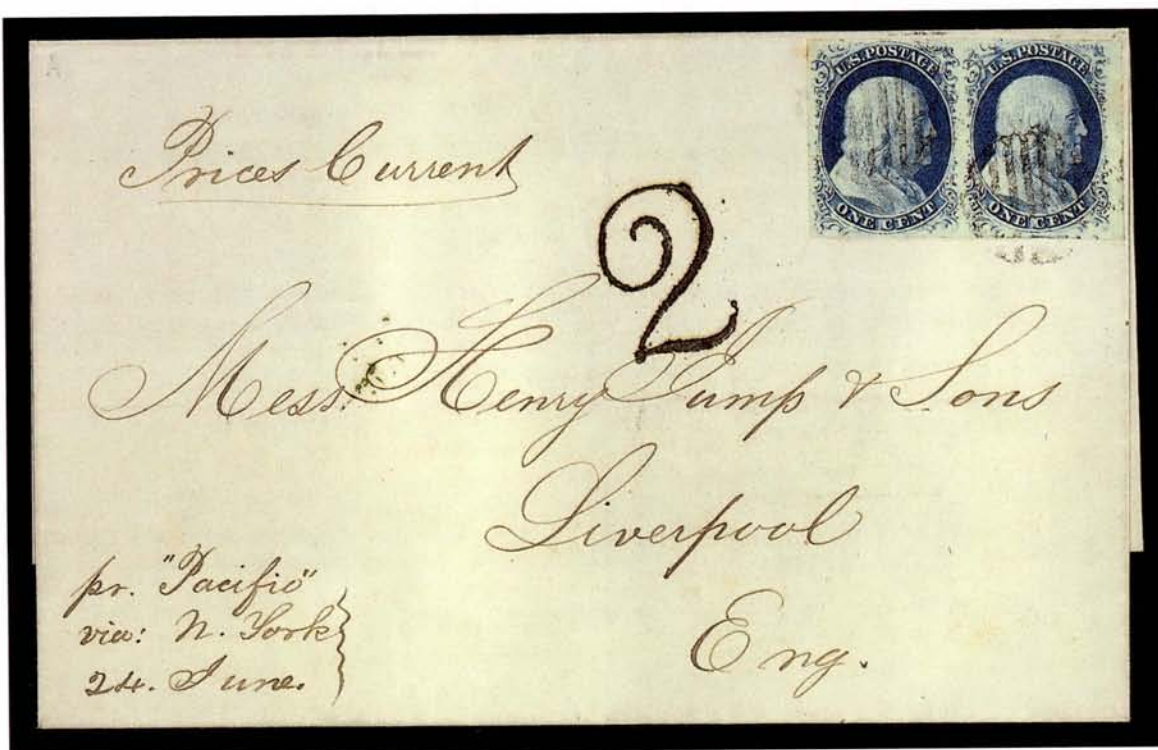 U.S. POSTAGE
ONE CENT
U.S. POSTAGE
ONE CENT
Prices Current
2
Mess. Henry Jump & Sons
Liverpool
Eng.
pr. "Pacific"
via: N. York
24. June.